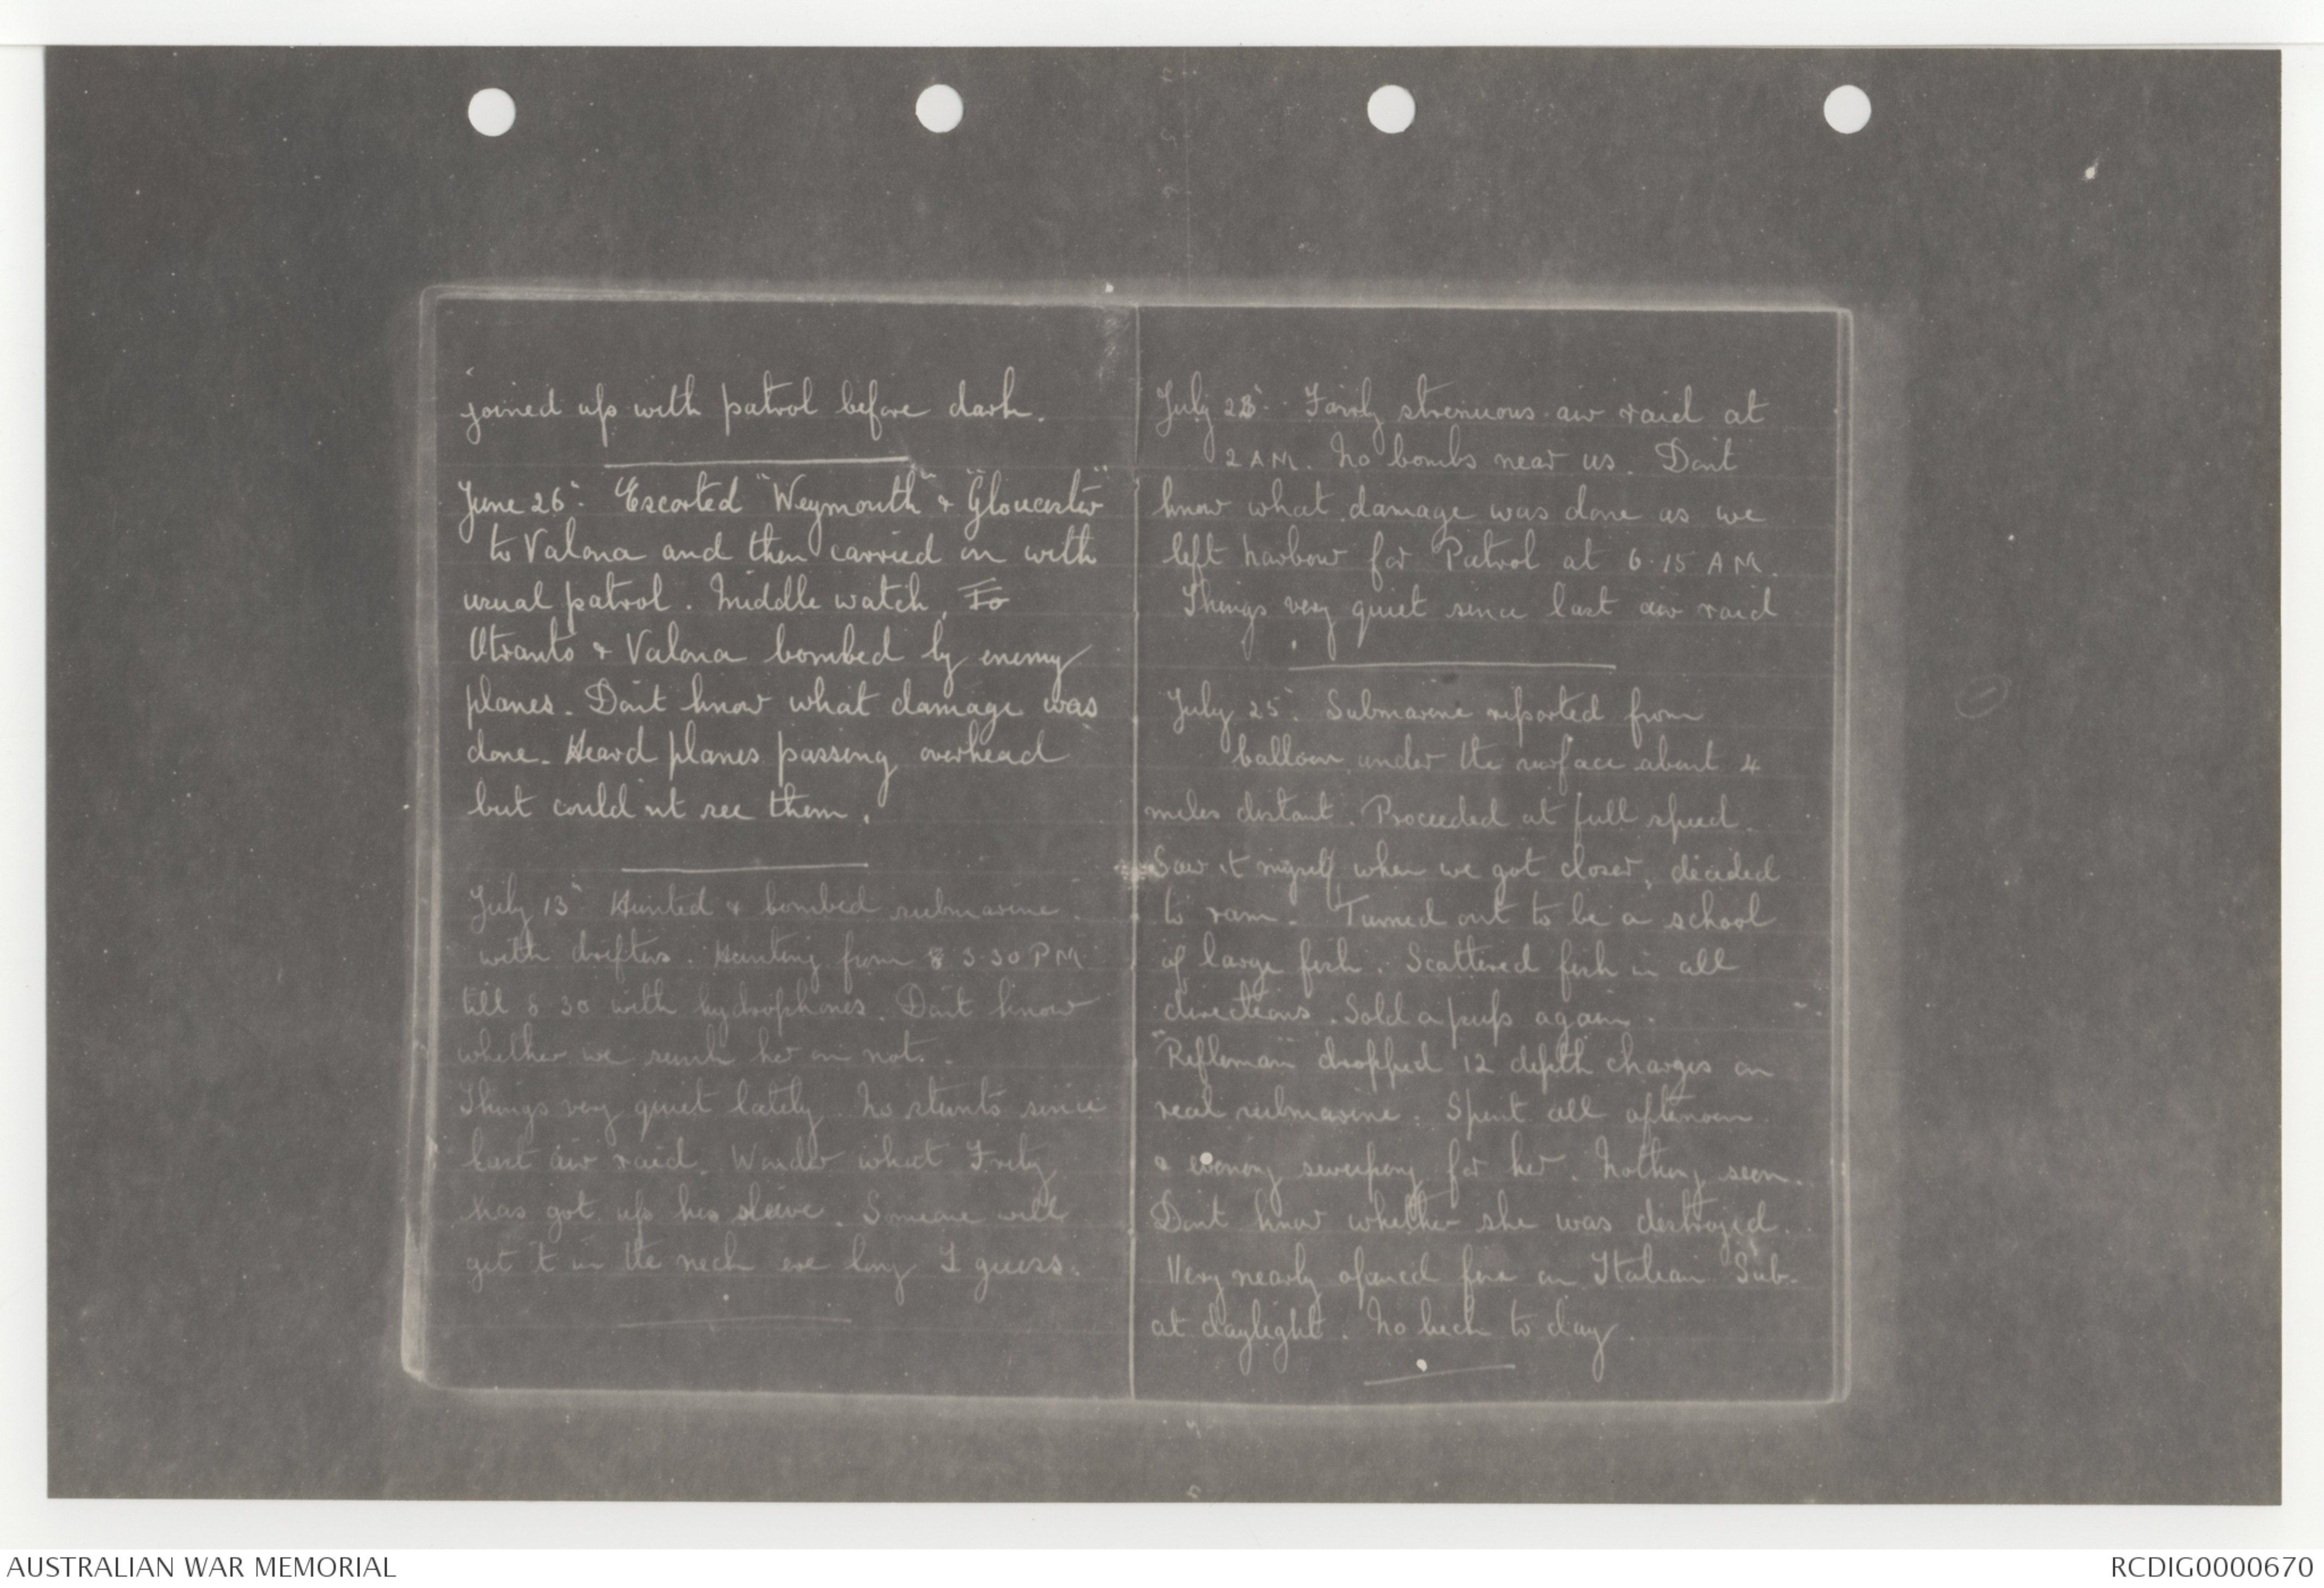 joined up with patrol before dark.
June 26th. Escorted "Weymouth" & "Gloucester"
to Valona and then carried on with
usual patrol. Middle watch, To
Otranto & Valona bombed by enemy
planes. Don't know what damage was
done. Heard planes passing overhead
but could'nt see them.
July 13th Hunted & bombed submarine
with drifters. Hunting from 8 3.30 PM
till 8 30 with hydrophones. Don't know
whether we sunk her or not.
Things very quiet lately. No stunts since
last air raid. Wonder what Fritz
has got up his sleeve. Someone will
get it in the neck ere long I guess.
July 23rd. Fairly strenuous air raid at
2 AM. No bombs near us. Don't
know what damage was done as we
left harbour for Patrol at 6.15 AM.
Things very quiet since last air raid
July 25th. Submarine reported from
balloon, under the surface about 4
miles distant. Proceeded at full speed.
Saw it myself when we got closer, decided
to ram. Turned out to be a school
of large fish. Scattered fish in all
directions. Sold a pup again.
"Rifleman" dropped 12 depth charges on
real submarine. Spent all afternoon
& evening sweeping for her. Nothing seen.
Don't know whether she was destroyed.
Very nearly opened fire on Italian Sub.
at daylight. No luck to day.
AUSTRALIAN WAR MEMORIAL
RCDIG0000670